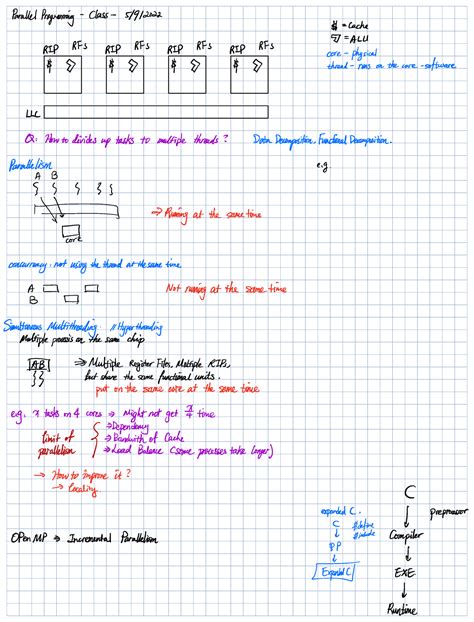 Parallel Programming - Class - 5/9/2022
$ = Cache
= ALU
RIP RFs RIP RFs RIP RFs RIP RFs
$ $ $ $
core - physical
thread - runs on the core - software
LLC
Q: How to divides up tasks to multiple threads? Data Decomposition, Functional Decomposition.
Parallelism
e.g
A B
⇒ Running at the same time
core
concurrency: not using the thread at the same time
A
Not running at the same time
B
Simultaneous Multithreading. // Hyperthreading
Multiple process on the same chip
AB ⇒ Multiple Register Files, Multiple RIPs,
but share the same functional units.
put on the same core at the same time
e.g. x tasks on 4 cores ⇒ Might not get x/4 time
⇒ Dependency
limit of parallelism
⇒ Bandwith of Cache
⇒ Load Balance (some processes take longer)
→ How to improve it?
→ locality
OPen MP ⇒ Incremental Parallelism
expanded C.
C
#define
#include
PP
Expanded C
C
preprocessor
Compiler
EXE
Runtime